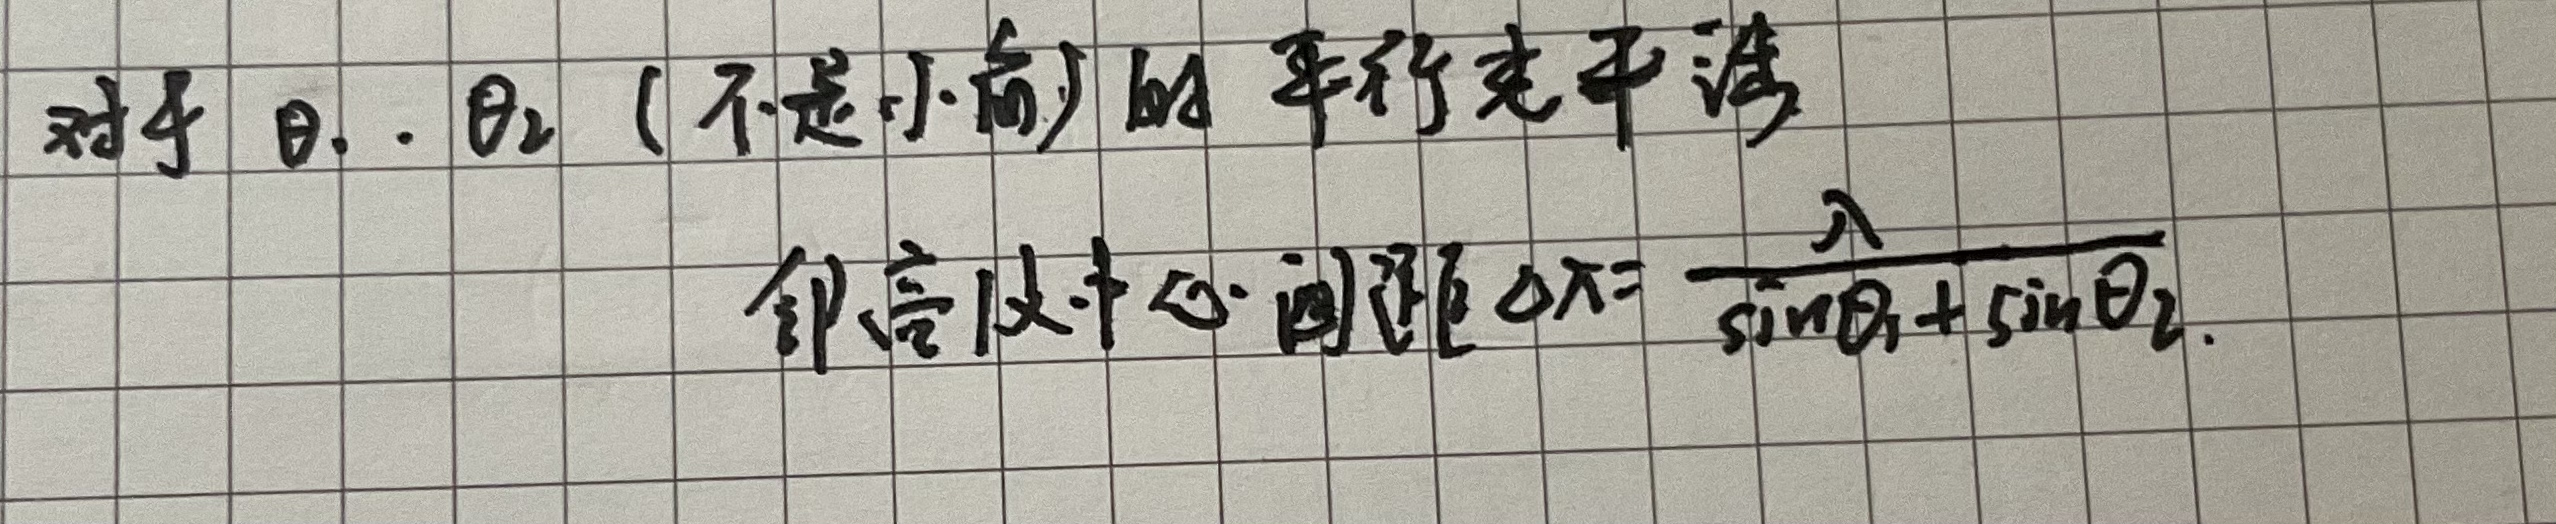 对于 θ₁. θ₂ (不是小角) 的 平行光干涉
邻亮纹中心间距 Δx = λ/(sinθ₁+sinθ₂).